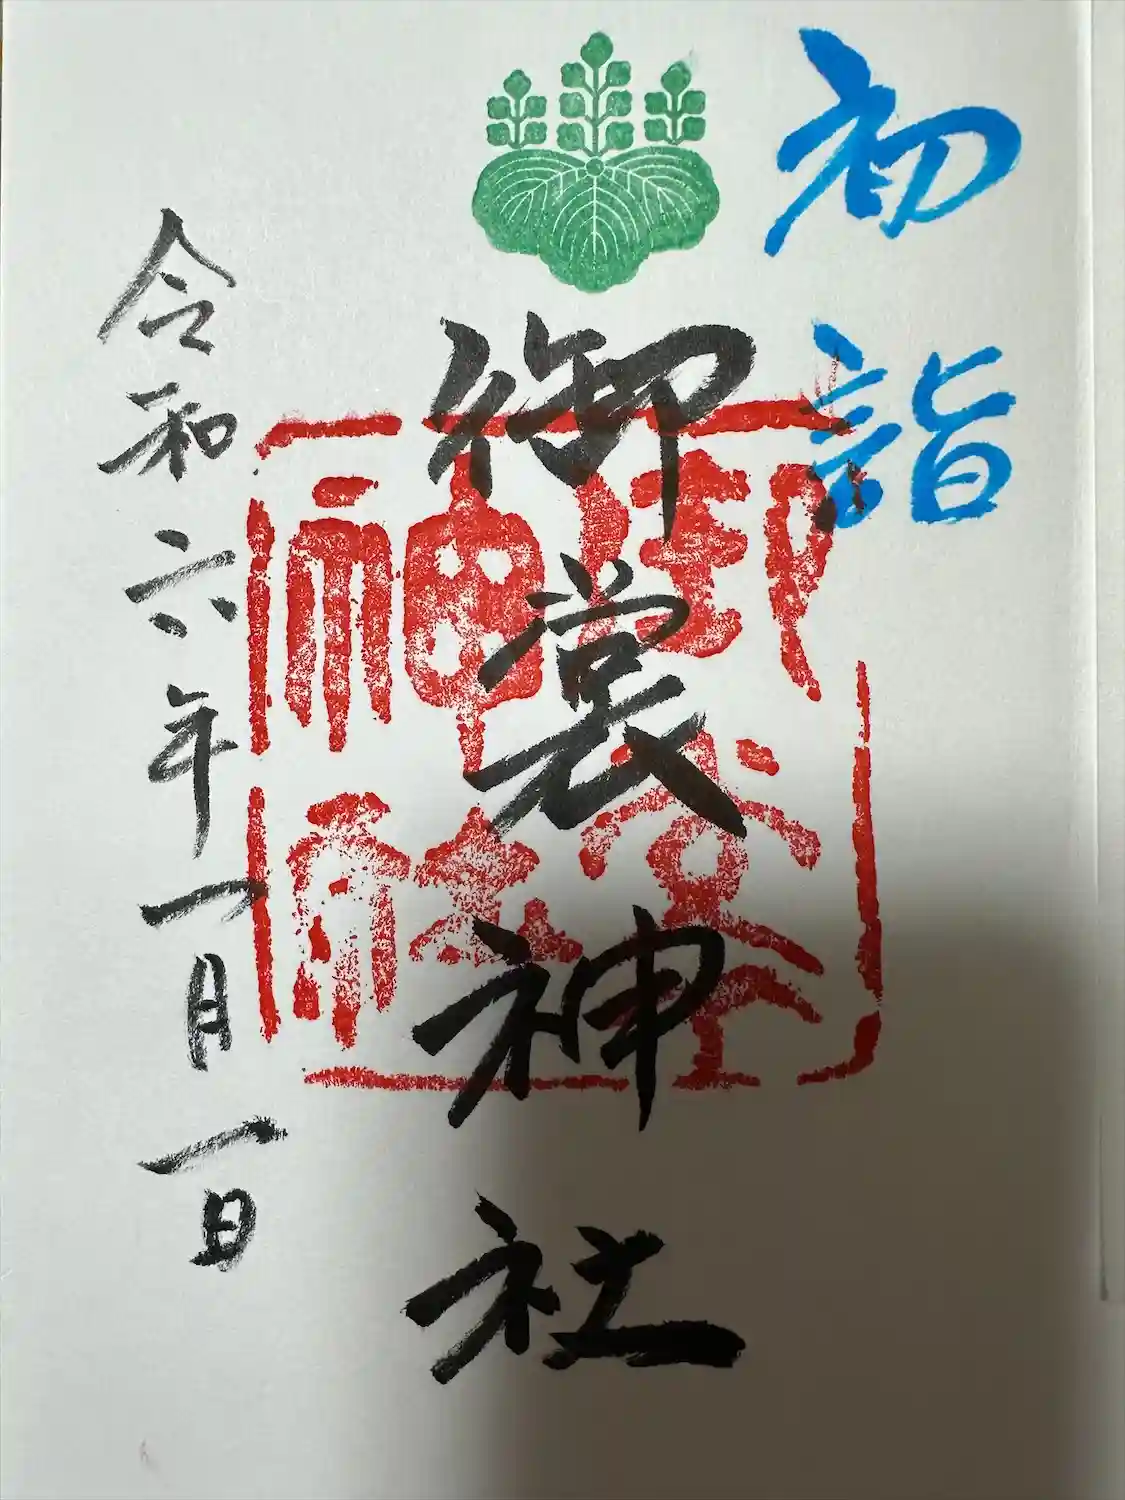 初詣
御裳神社
御裳
神社
令和六年一月一日